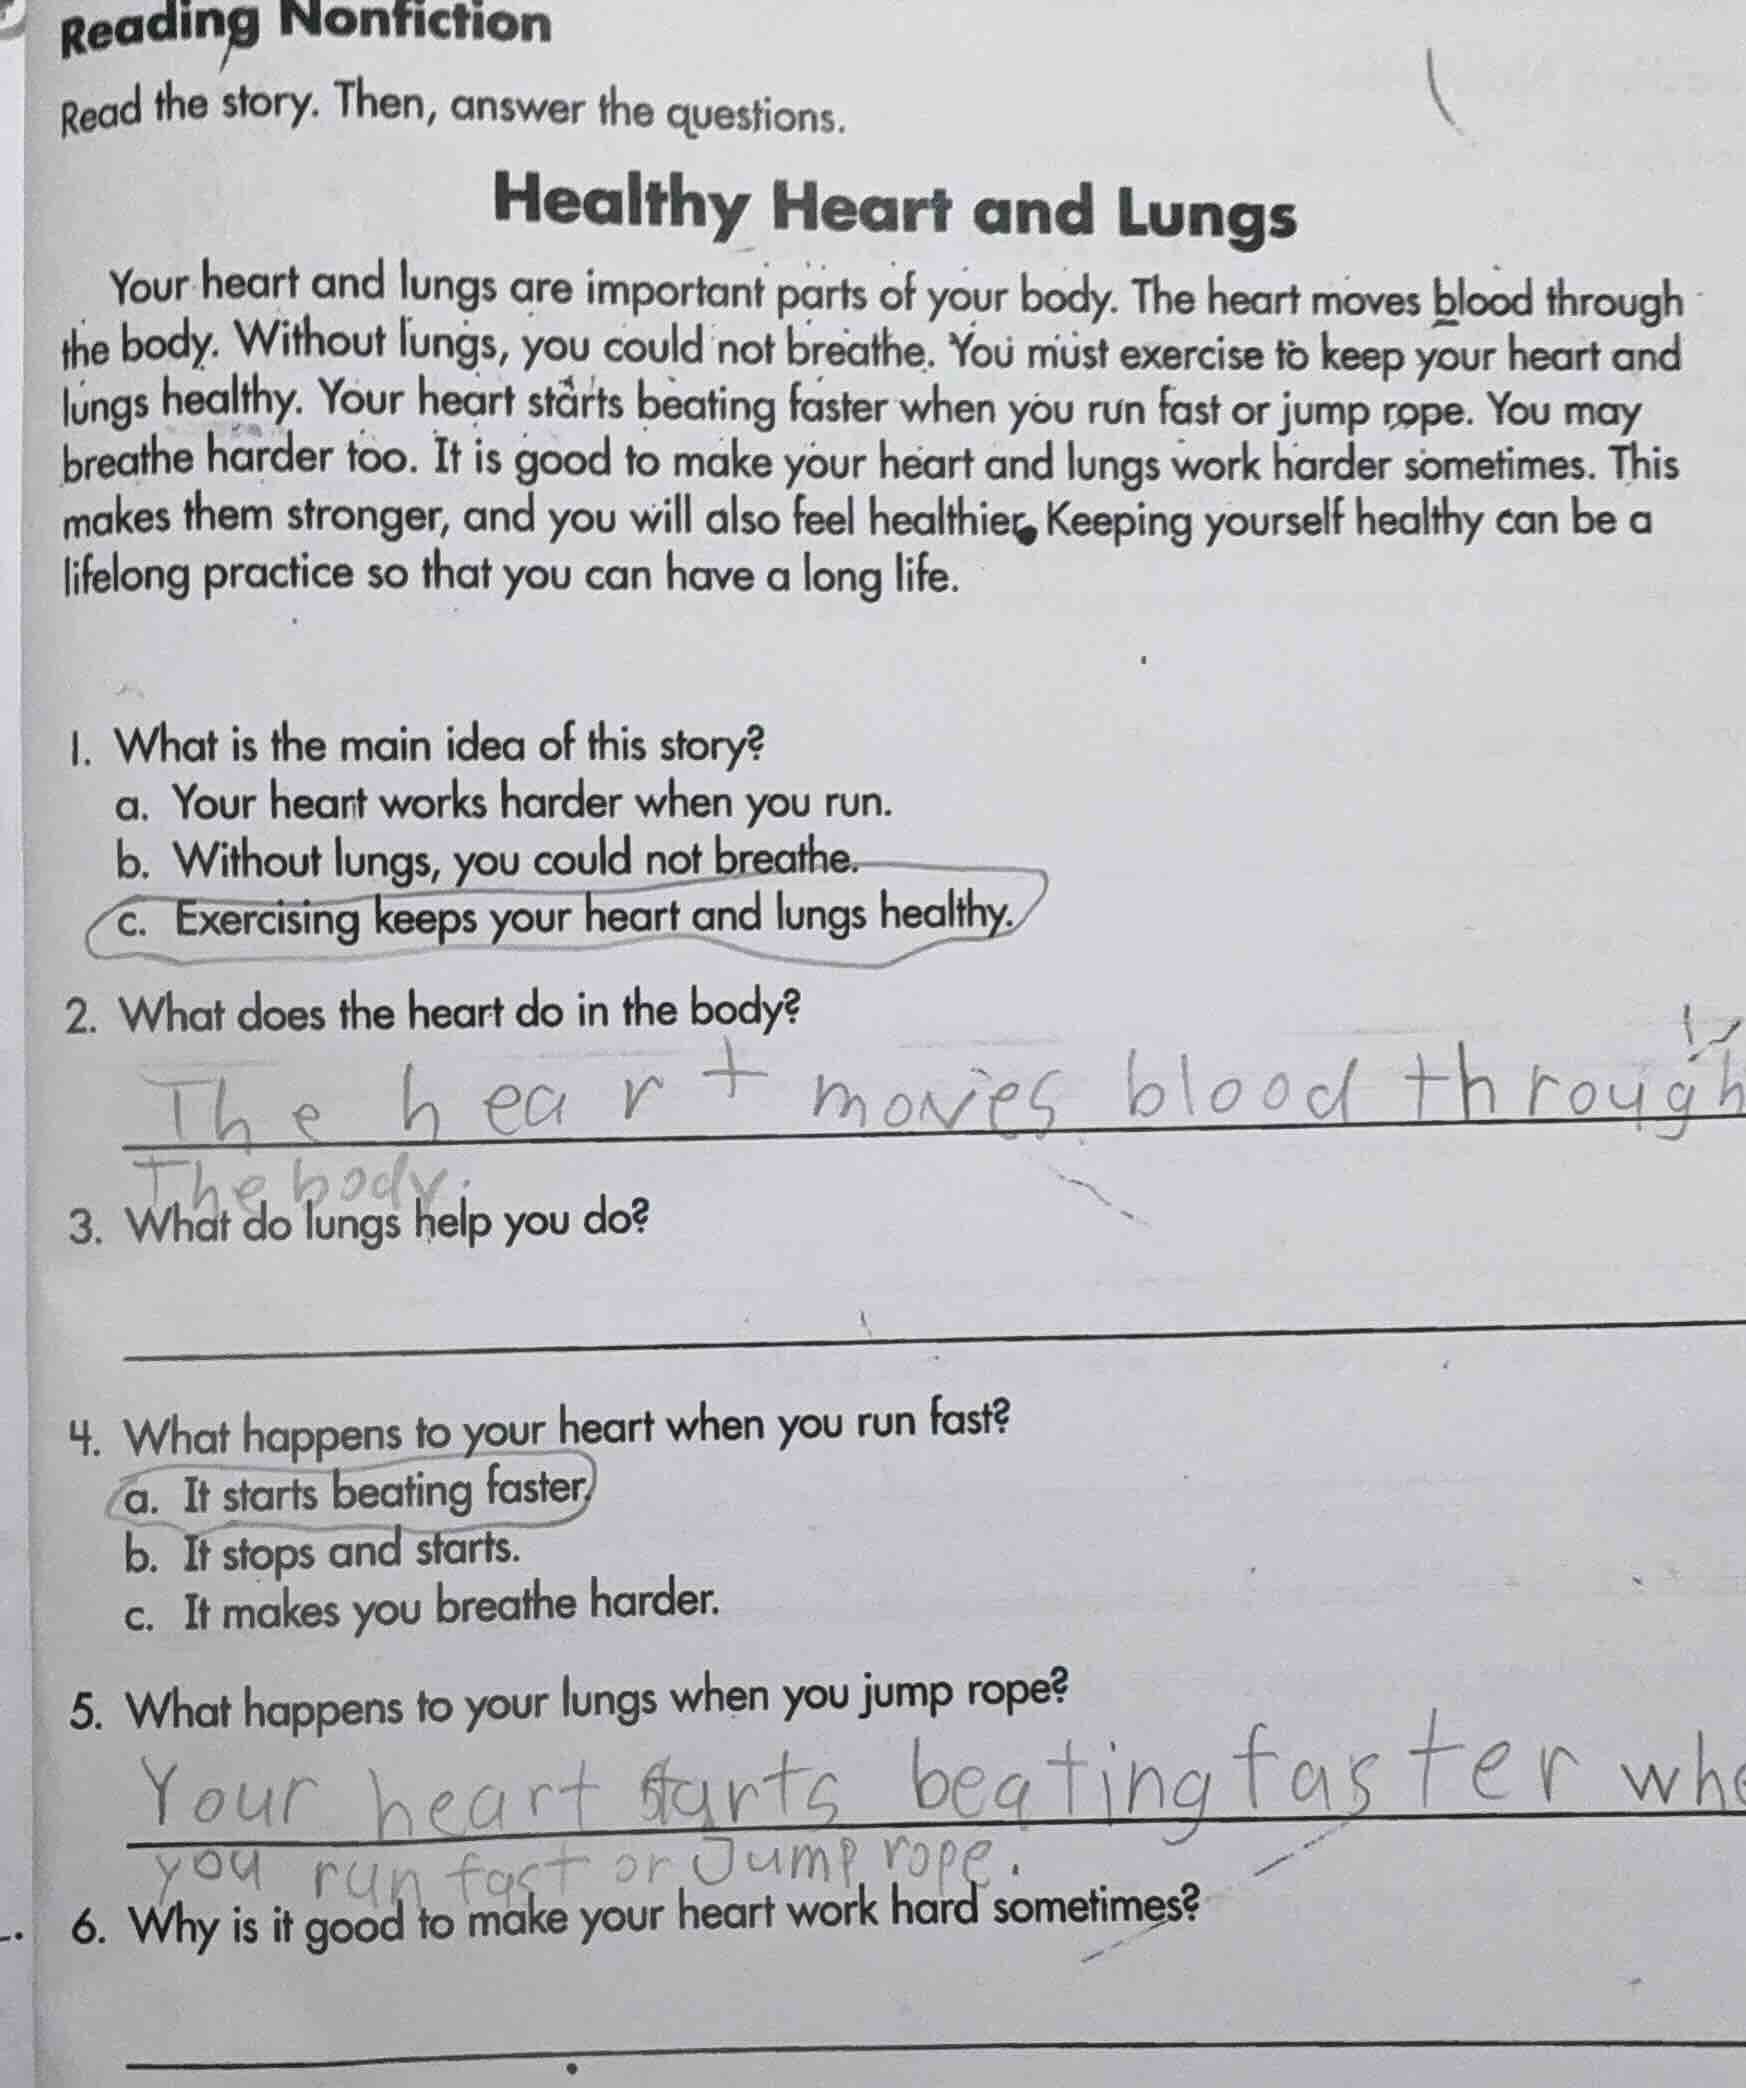 Reading Nonfiction
Read the story. Then, answer the questions.
Healthy Heart and Lungs
Your heart and lungs are important parts of your body. The heart moves blood through
the body. Without lungs, you could not breathe. You must exercise to keep your heart and
lungs healthy. Your heart starts beating faster when you run fast or jump rope. You may
breathe harder too. It is good to make your heart and lungs work harder sometimes. This
makes them stronger, and you will also feel healthier. Keeping yourself healthy can be a
lifelong practice so that you can have a long life.
1. What is the main idea of this story?
a. Your heart works harder when you run.
b. Without lungs, you could not breathe.
c. Exercising keeps your heart and lungs healthy.
2. What does the heart do in the body?
The heart moves blood through
The body.
3. What do lungs help you do?
4. What happens to your heart when you run fast?
a. It starts beating faster.
b. It stops and starts.
c. It makes you breathe harder.
5. What happens to your lungs when you jump rope?
Your heart starts beating faster whe
you run fast or Jump rope.
6. Why is it good to make your heart work hard sometimes?